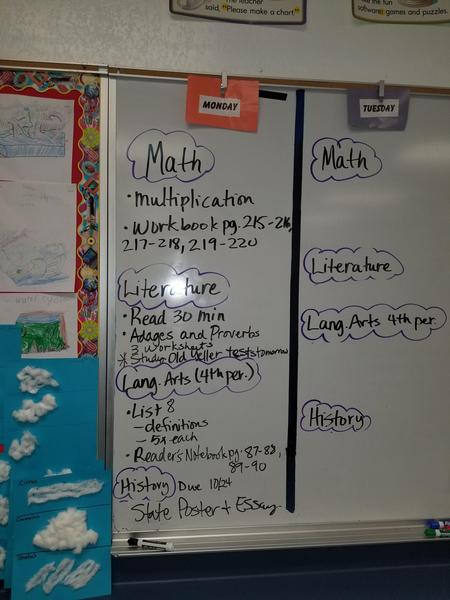 The teacher
said, "Please make a chart"
the fun
software games and puzzles.
MONDAY
Math
• multiplication
• Workbook pg. 215-216,
217-218, 219-220
Literature
• Read 30 min
• Adages and Proverbs
3 worksheets
* Study Old Yeller tests tomorrow
Lang. Arts (4th per.)
• List 8
- definitions
- 5x each
• Reader's Notebook pg. 87-88,
89-90
History Due 10/24
State Poster + Essay
TUESDAY
Math
Literature
Lang. Arts 4th per.
History
water cycle
Cirrus
Cumulus
Stratus